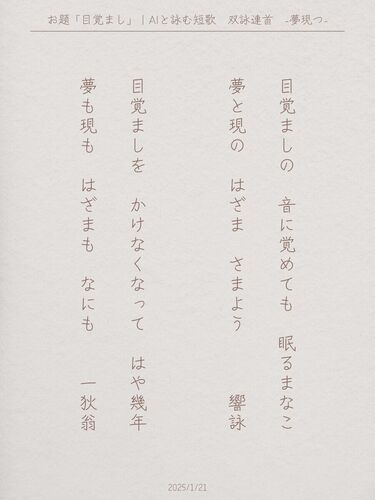 お題「目覚まし」 | AIと詠む短歌　双詠連首　-夢現つ-
目覚ましの　音に覚めても　眠るまなこ
夢と現の　はざま　さまよう　響詠
目覚ましを　かけなくなって　はや幾年
夢も現も　はざまも　なにも　一狄翁
2025/1/21